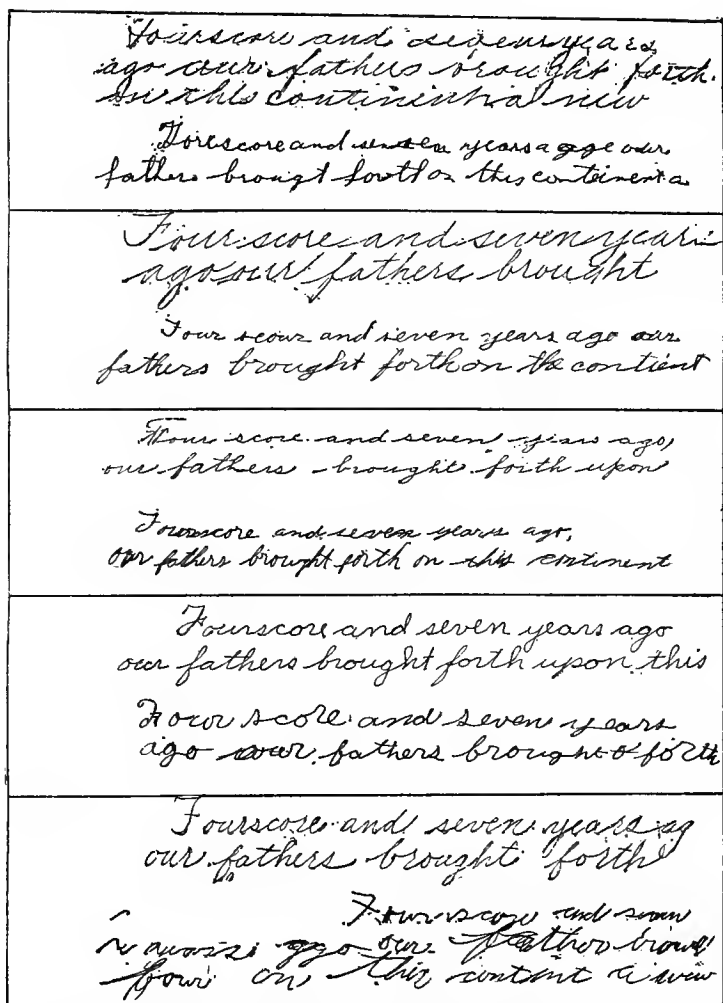 Fourscore and seven years
ago our fathers brought forth
on this continent a new
Forescore and seven years a ago our
fathers brougt forth on this contineent a
Four score and seven years
ago our fathers brought
Four scour and seven years ago our
fathers brought forth on the contient
Four score and seven years ago,
our fathers brought forth upon
Fourscore and seven years ago,
our fathers brought forth on this continent
Fourscore and seven years ago
our fathers brought forth upon this
Four score and seven years
ago our fathers brought forth
Fourscore and seven years ag
our fathers brought forth
Fourscore and seven
ago our father
on this content a new